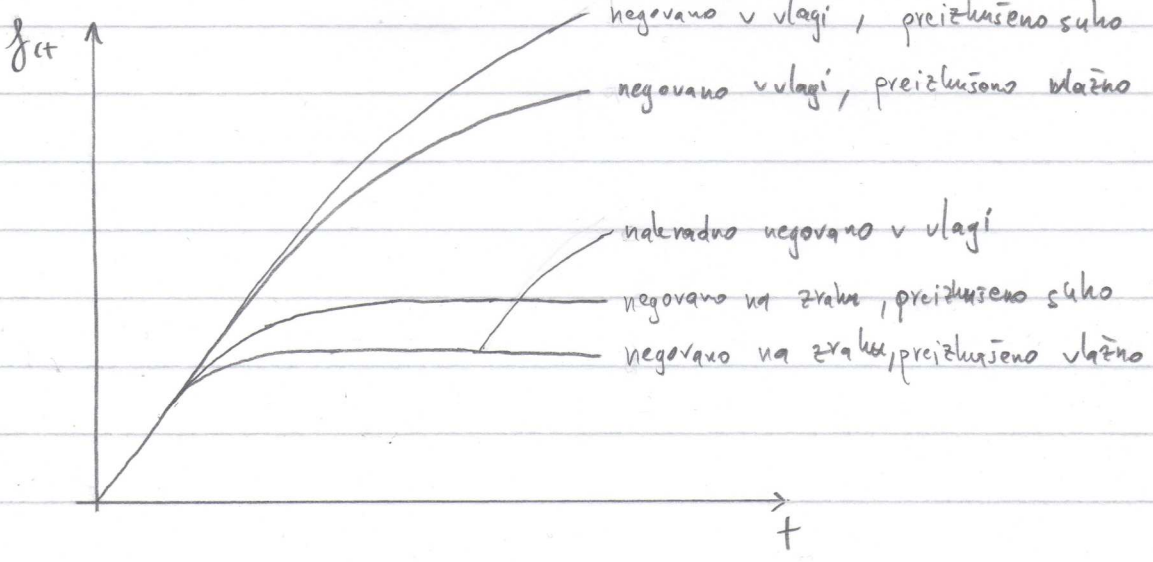 fct
negovano v vlagi, preizkušeno suho
negovano v vlagi, preizkušeno vlažno
naknadno negovano v vlagi
negovano na zraku, preizkušeno suho
negovano na zraku, preizkušeno vlažno
t